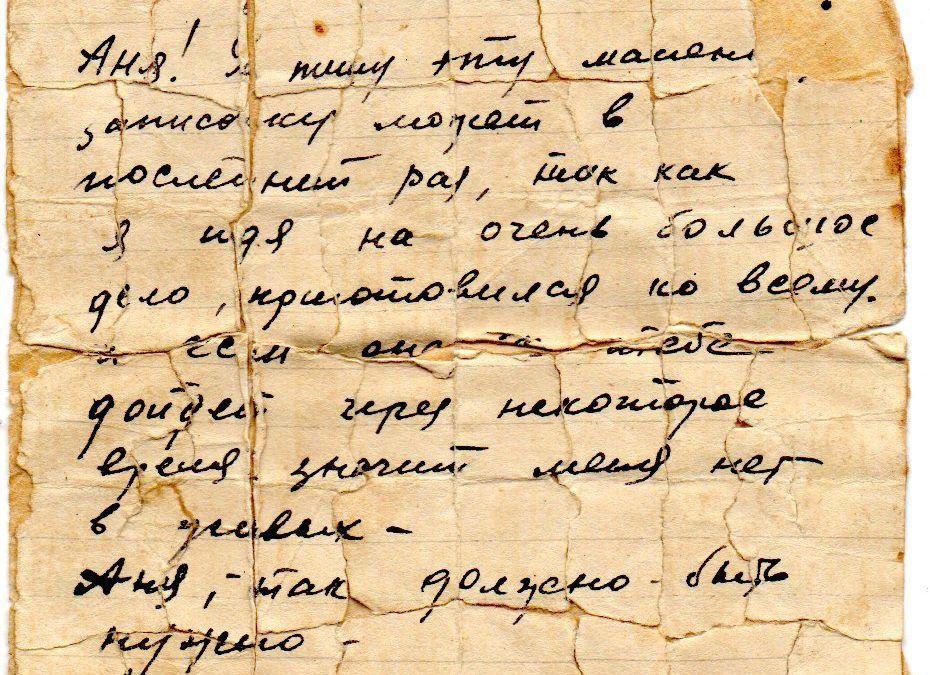 Аня! Я пишу эту малень
записочку может в
последний раз, так как
я идя на очень большое
дело, приготовился ко всему.
и если она тебе
дойдет через некоторое
время значит меня нет
в живых -
Аня, - так должно быть
нужно -